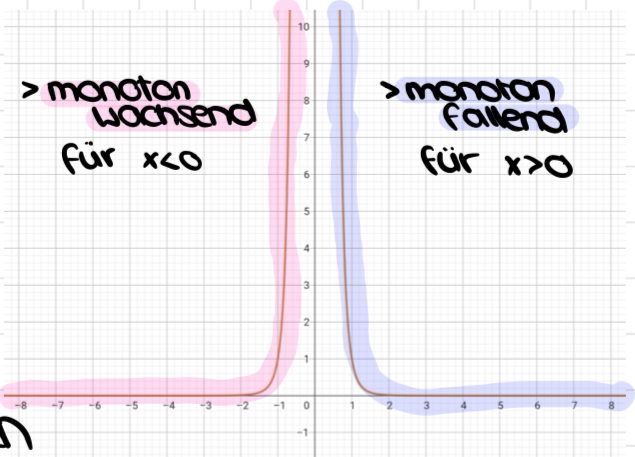 > monoton
wachsend
für x<0
> monoton
fallend
für x>0
10
9
8
7
6
5
4
3
2
1
-8 -7 -6 -5 -4 -3 -2 -1 0 1 2 3 4 5 6 7 8
-1